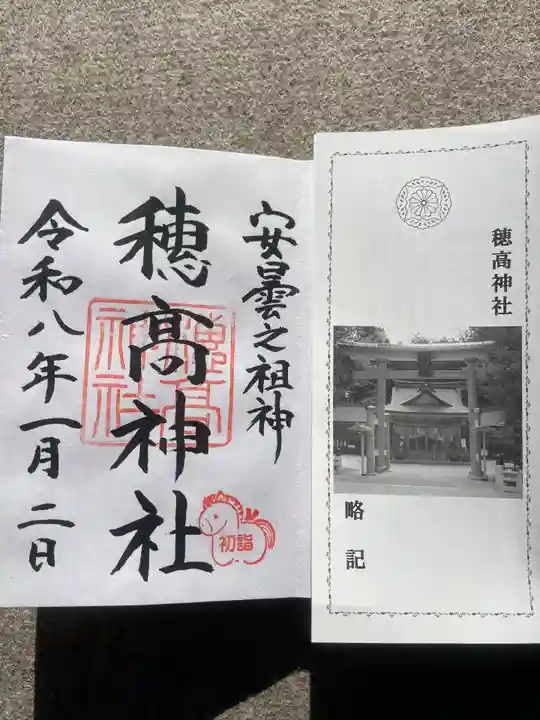 安曇之祖神
穂高神社
令和八年一月二日
穂高神社
初詣
穂高神社
略記